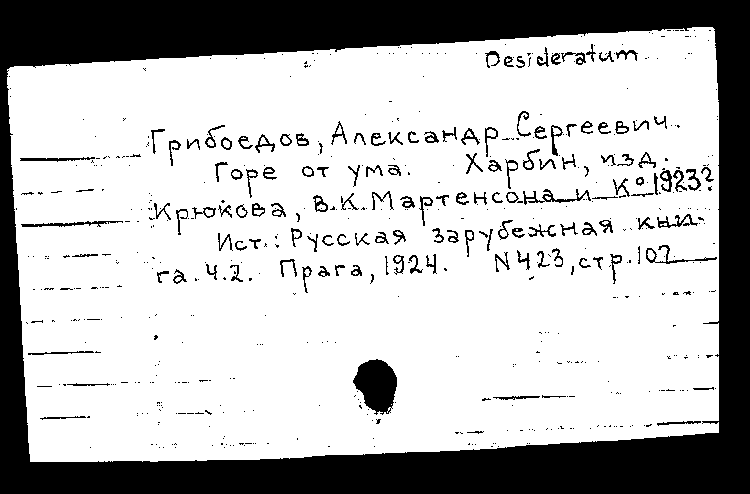 Desideratum
Грибоедов, Александр Сергеевич.
Горе от ума. Харбин, изд.
Крюкова, В.К. Мартенсона и Кº 1923?
Ист.: Русская зарубежная кни-
га. Ч.2. Прага, 1924. N 423, стр. 107